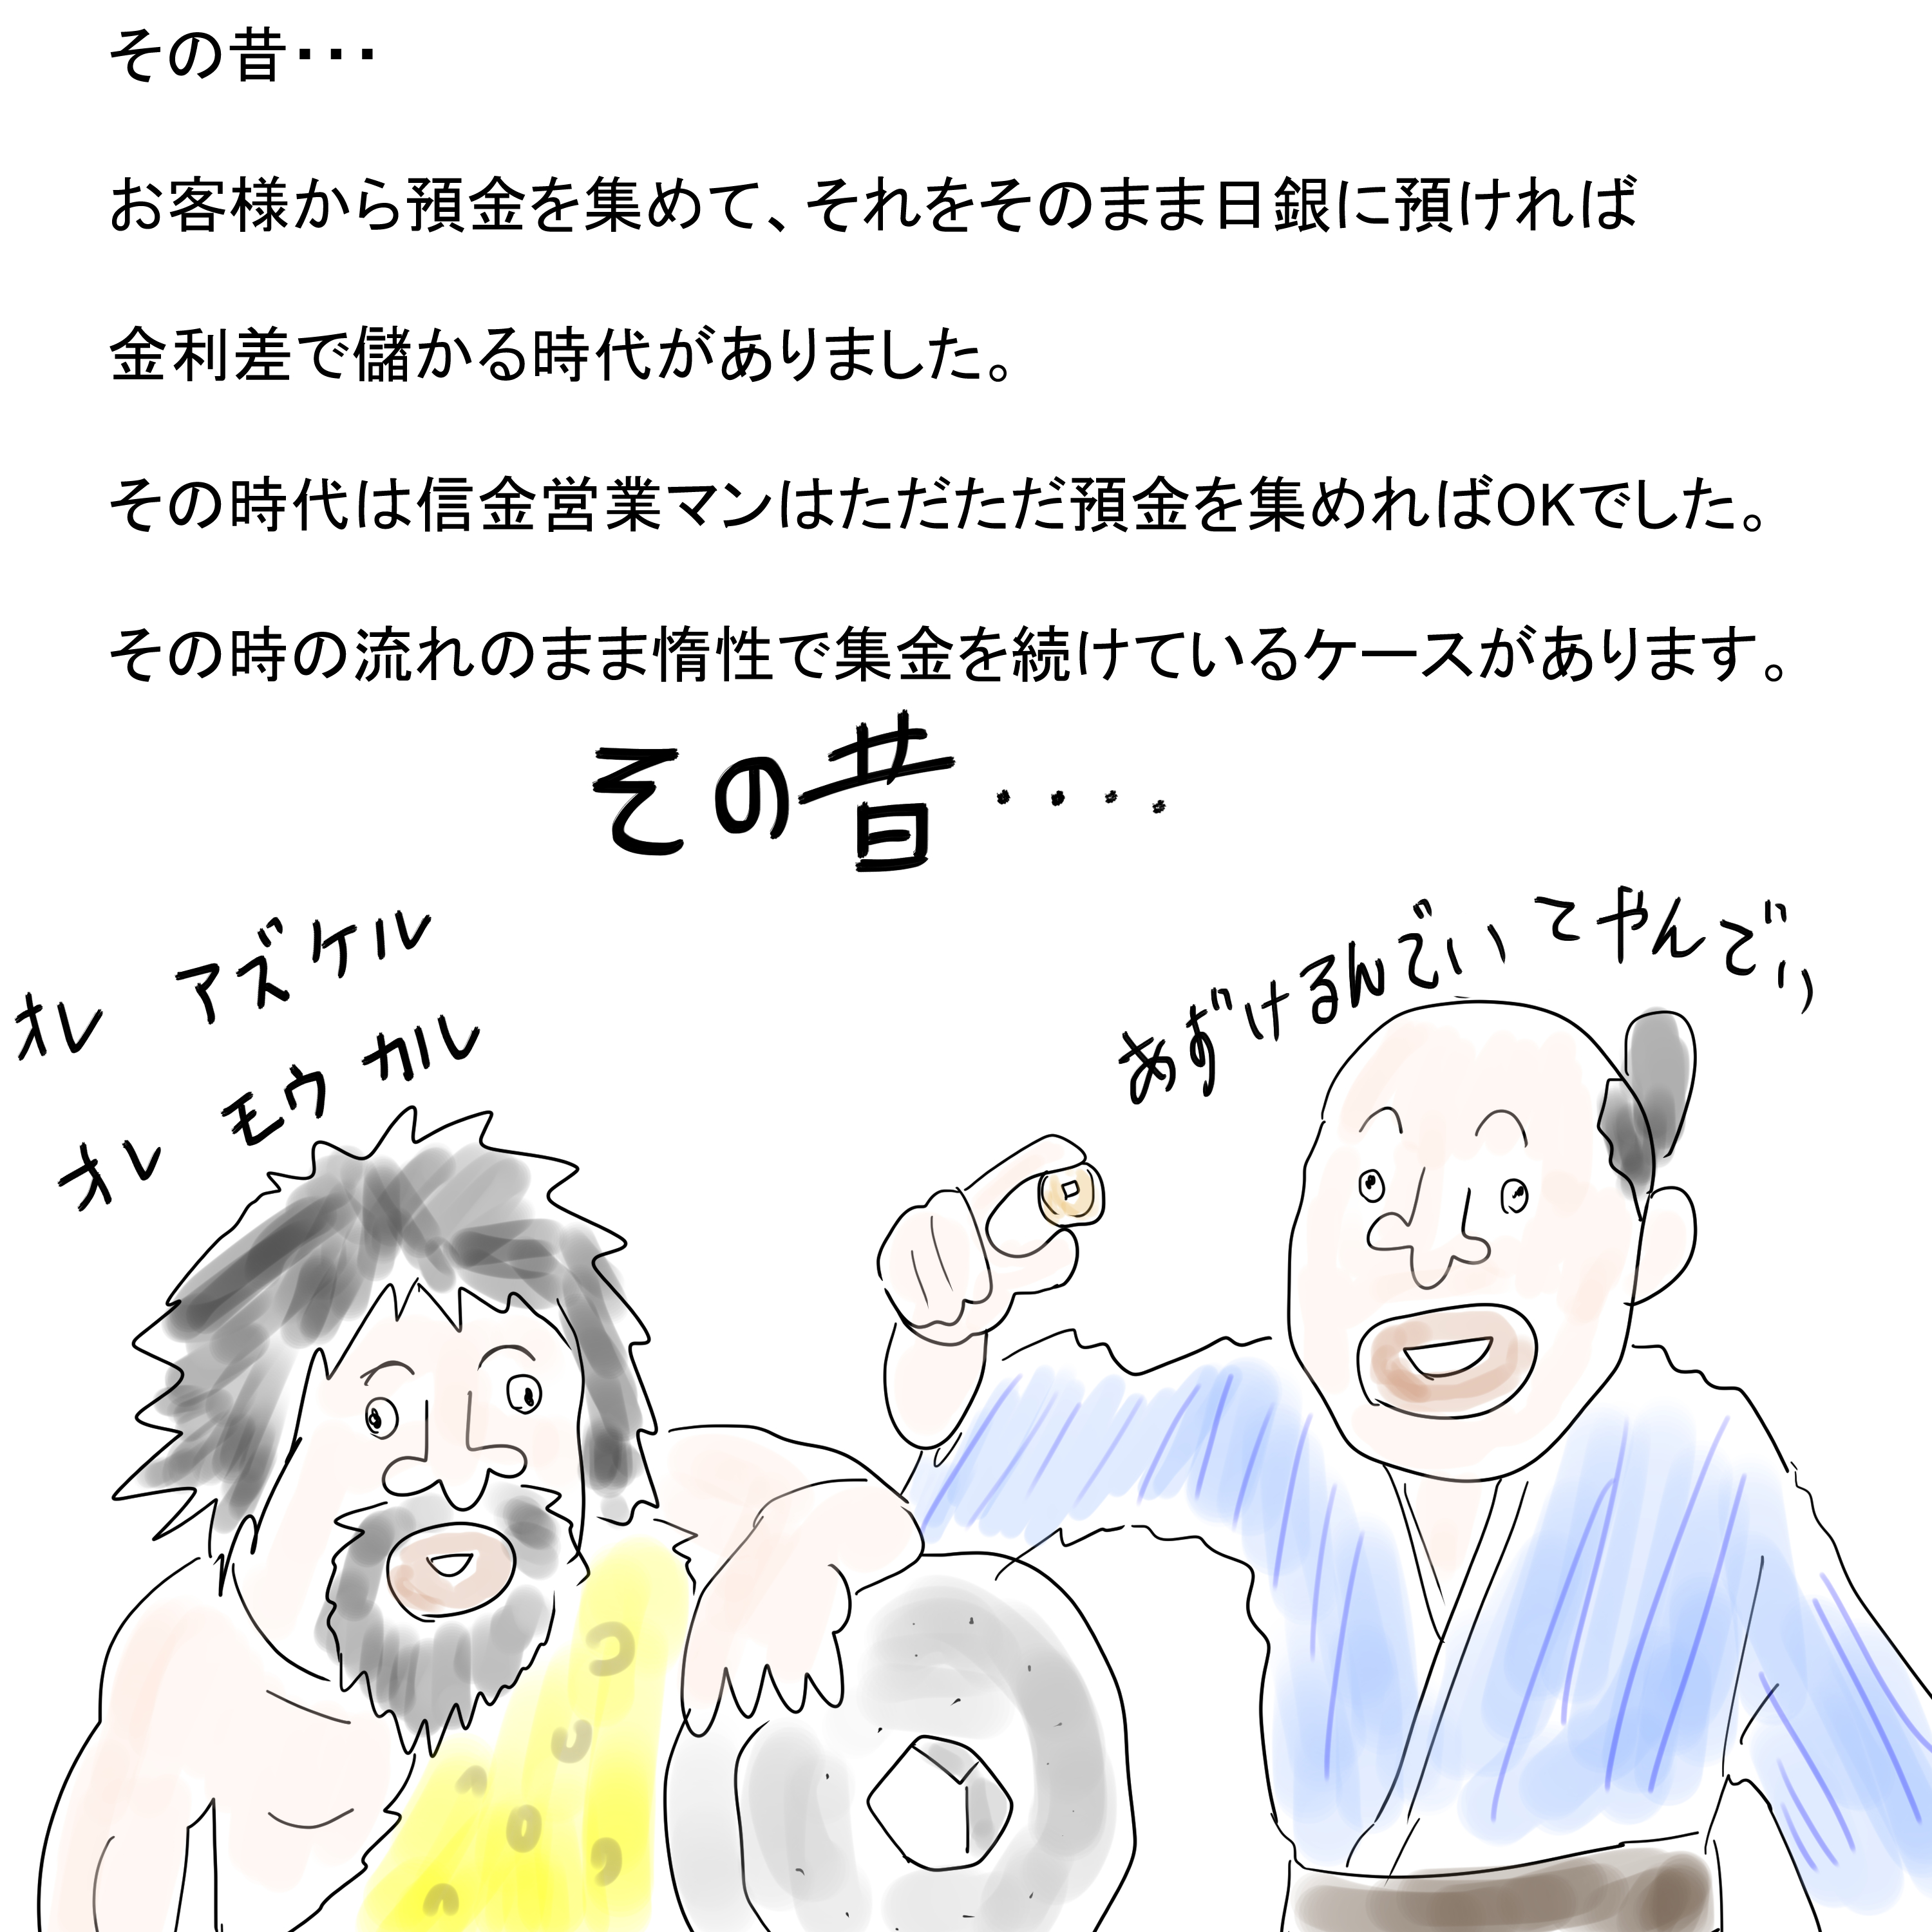 その昔・・・
お客様から預金を集めて、それをそのまま日銀に預ければ
金利差で儲かる時代がありました。
その時代は信金営業マンはただただ預金を集めればOKでした。
その時の流れのまま惰性で集金を続けているケースがあります。
その昔・・・・
オレ アズケル
オレ モウカル
あずけるんでぃいてやんでぃ